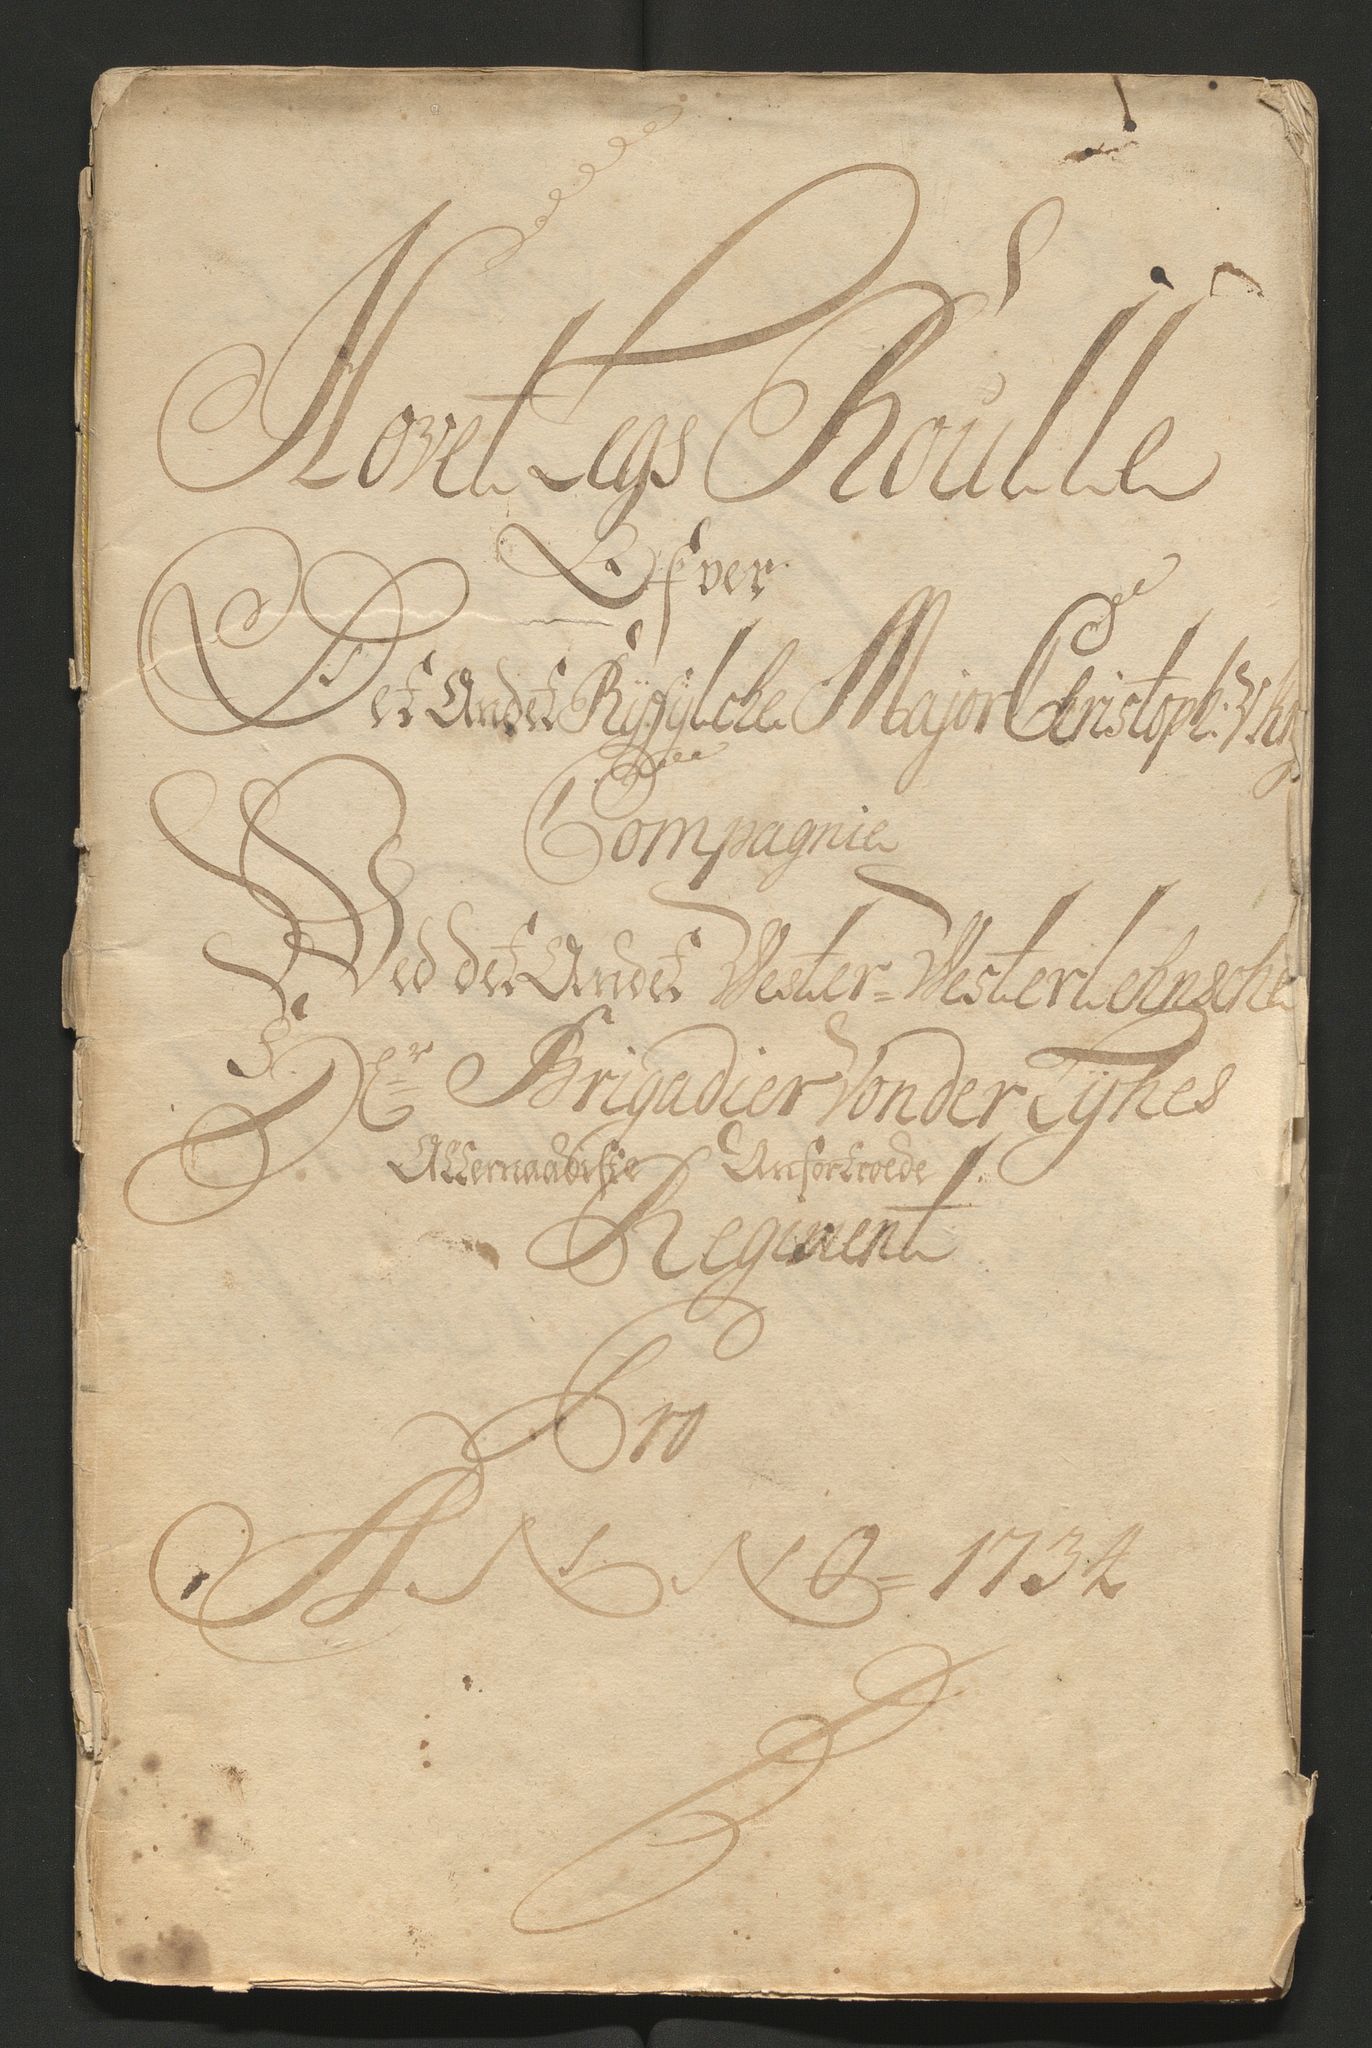 Hovet Legs Roulle
Ofver
Det Andet Ryfylche Major Christoph:
Compagnie
Ved det Andet Vester=Westerlehnsche
Hr Brigadier Von der Tyhes
Allernaadigste Anfortroede
Regiment
Pro
ANNO=1734